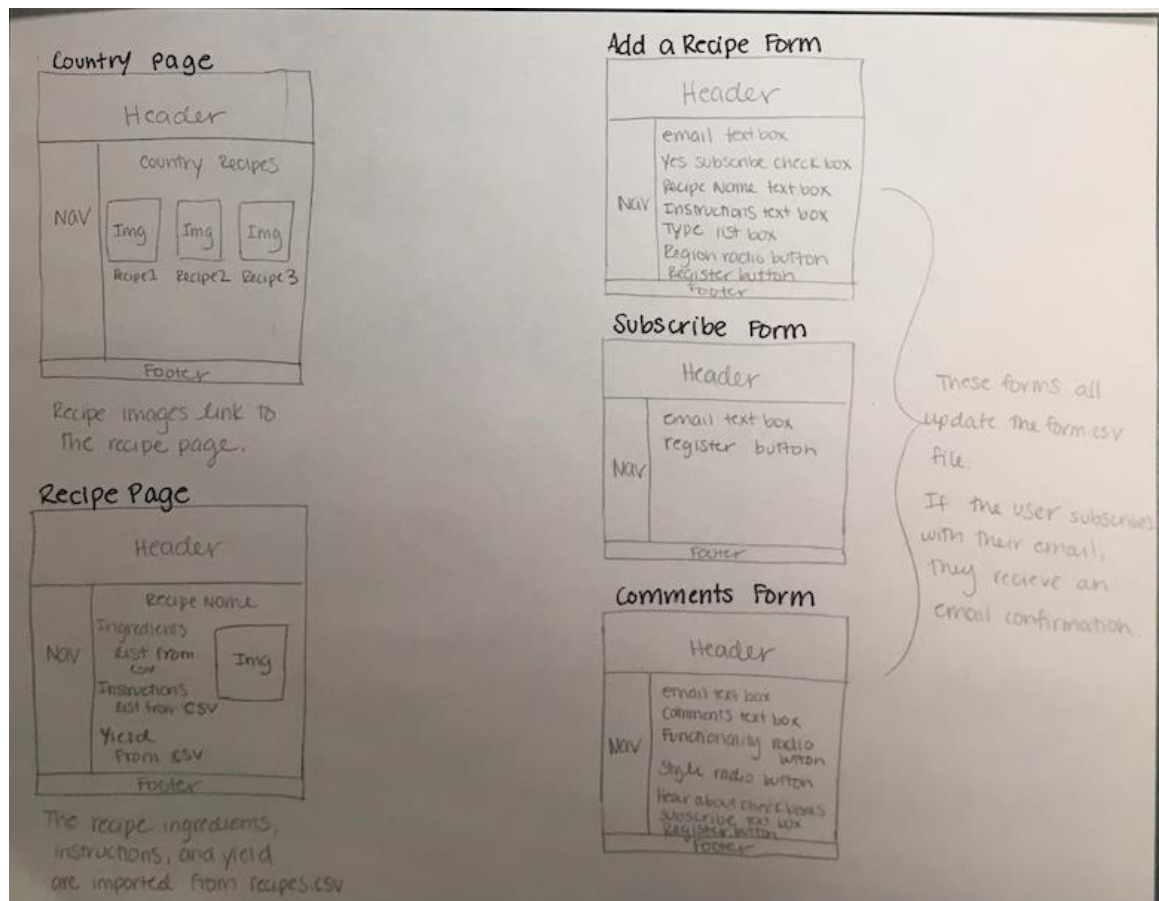 Country page
Header
Nav
Country Recipes
Img
Img
Img
Recipe1
Recipe2
Recipe3
Footer
Recipe images link to
the recipe page.
Recipe Page
Header
Nav
Recipe Name
Ingredients
List from
csv
Img
Instructions
List from CSV
Yield
From CSV
Footer
The recipe ingredients,
instructions, and yield
are imported from recipes.csv
Add a Recipe Form
Header
Nav
email text box
Yes subscribe check box
Recipe Name text box
Instructions text box
Type list box
Region radio button
Register button
Footer
Subscribe Form
Header
Nav
email text box
register button
Footer
Comments Form
Header
Nav
email text box
Comments text box
Functionality radio
button
Style radio button
Hear about check boxes
subscribe text box
Register button
Footer
These forms all
update the form.csv
file.
If the user subscribes
with their email,
they recieve an
email confirmation.